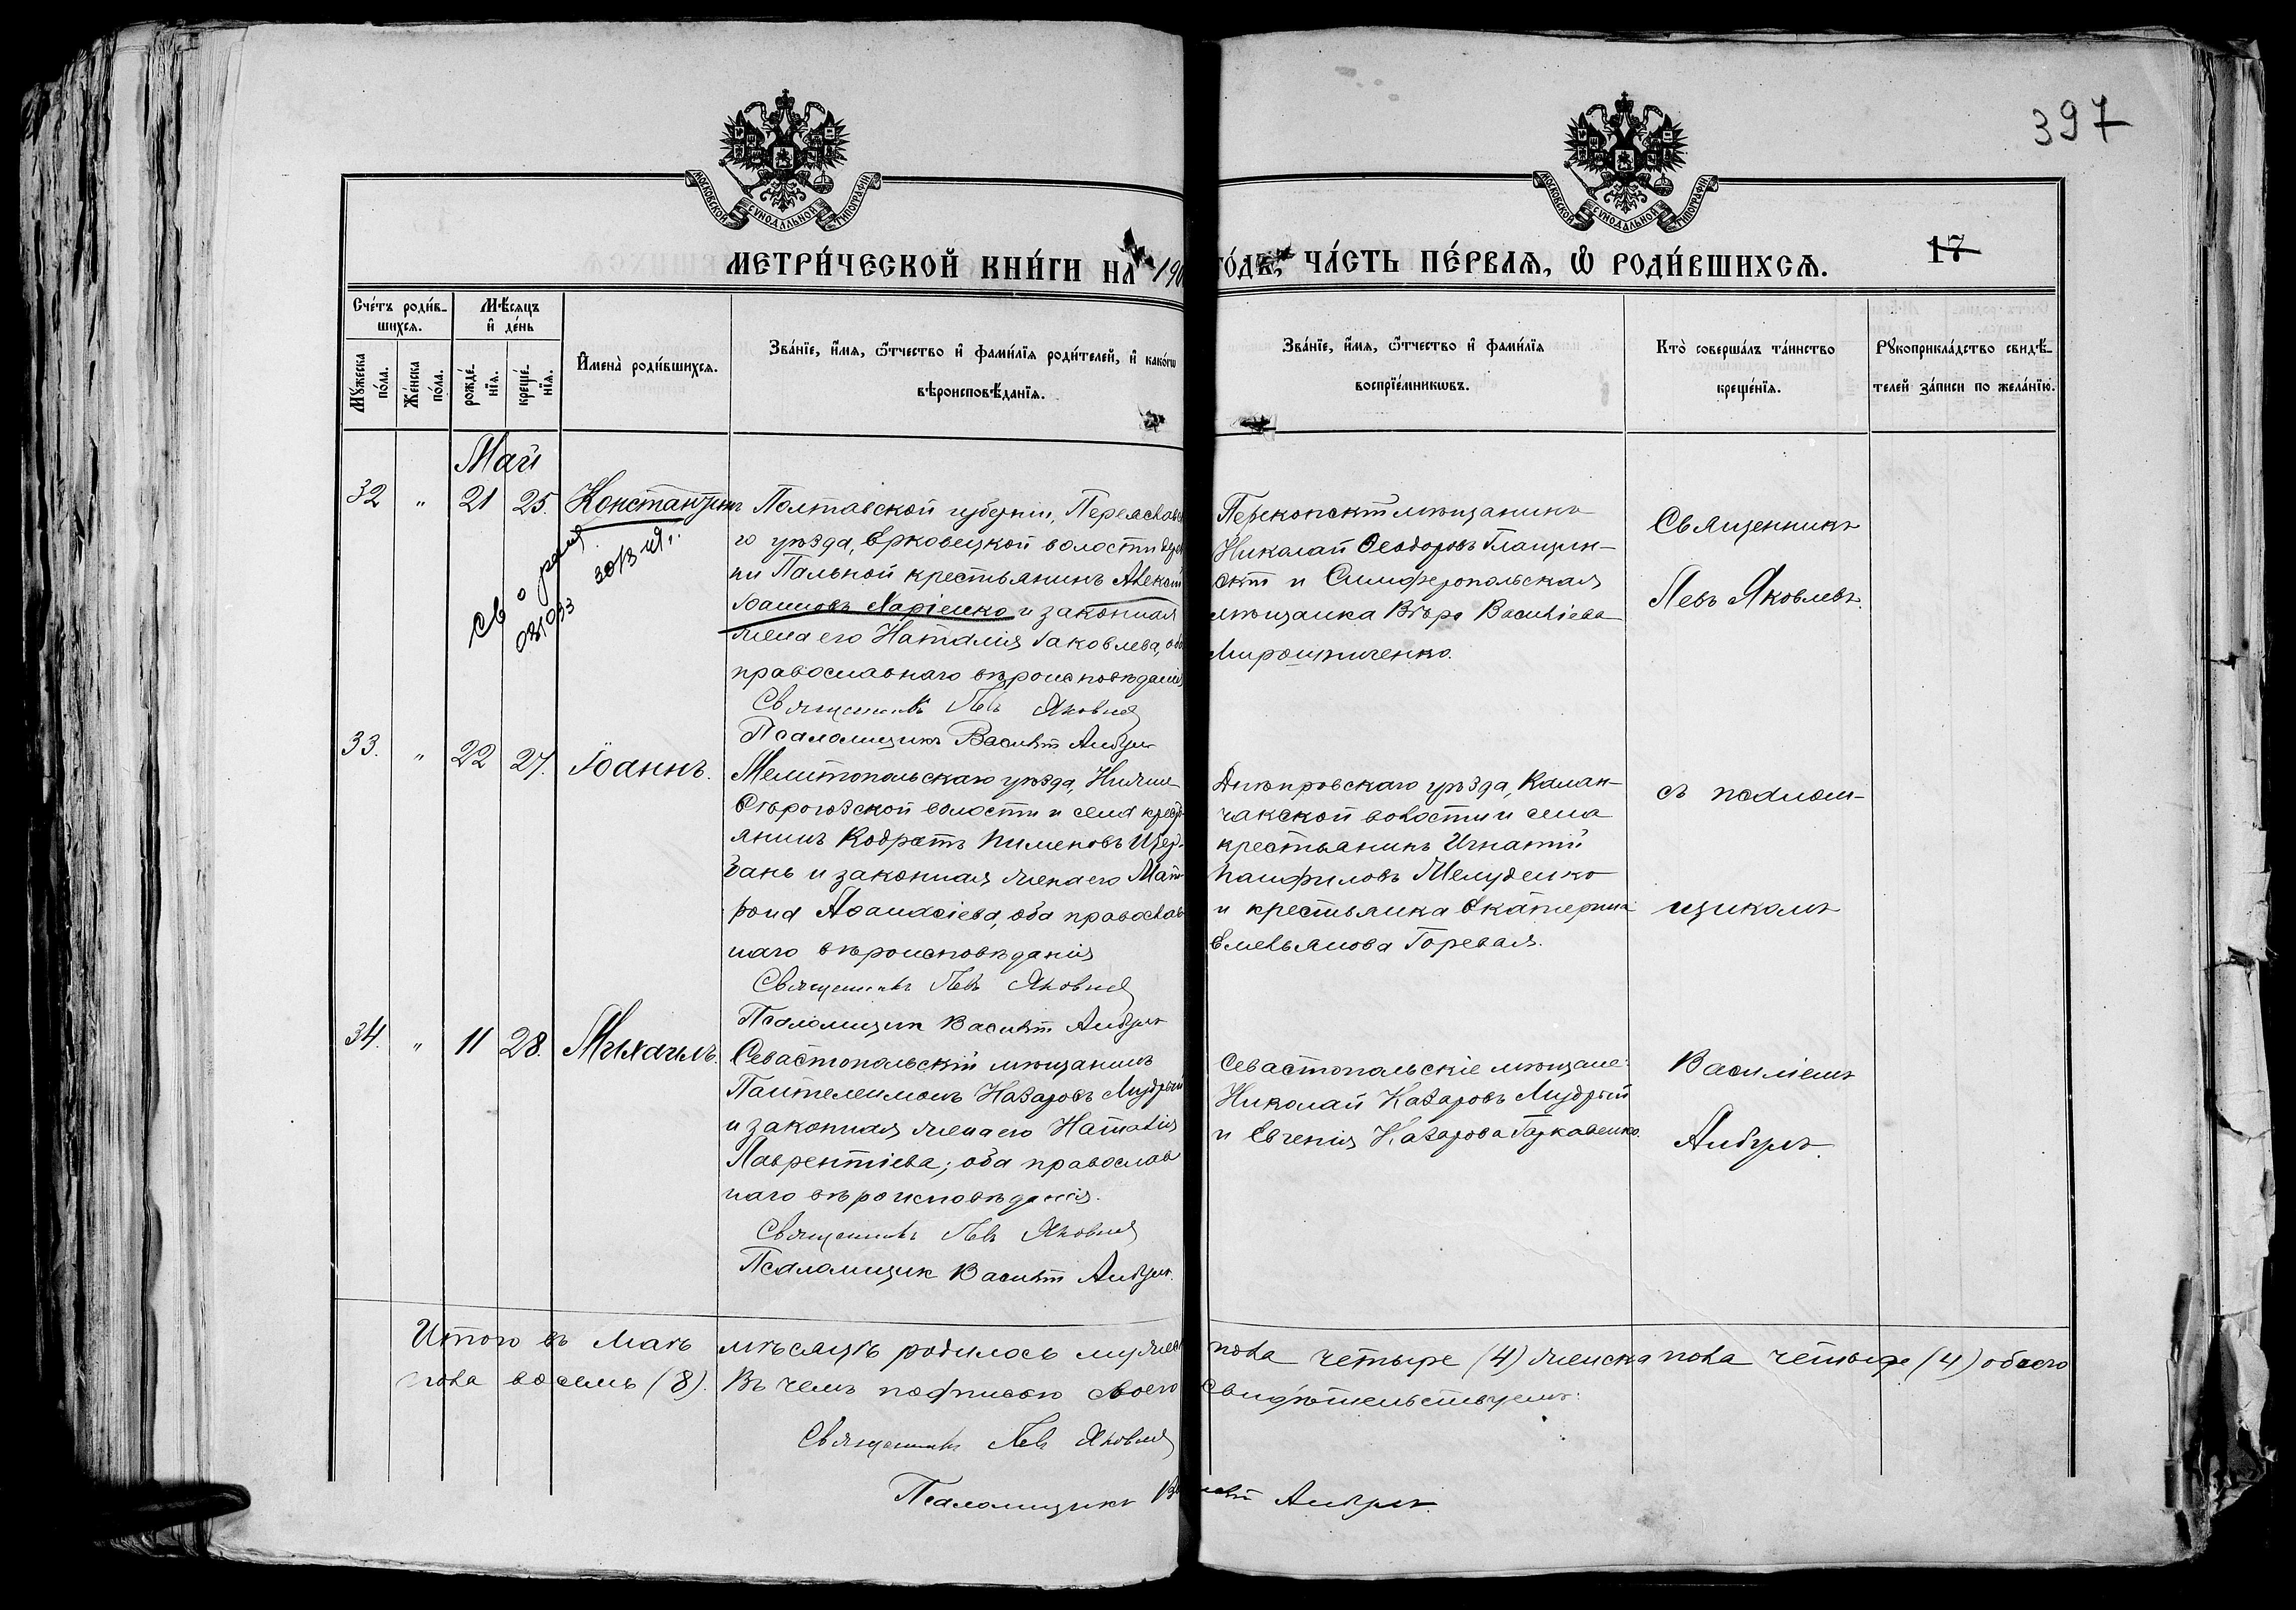 397
МОСКОВСКОЙ СУНОДАЛЬНОЙ ТИПОГРАФІИ
МОСКОВСКОЙ СУНОДАЛЬНОЙ ТИПОГРАФІИ
МЕТРИ́ЧЕСКОЙ КНИ́ГИ НА 190
ГО́ДЪ, ЧА́СТЬ ПЕ́РВАЯ, Ѡ РОДИ́ВШИХСЯ.
17
Сче́тъ роди́в-
шихся.
Мѣ́сяцъ
и҆ де́нь
Мꙋ́жеска
по́ла.
Же́нска
по́ла.
рожде́-
нїя.
креще́-
нїя.
И҆мена̀ роди́вшихся.
Зва́нїе, и҆́мя, ѻ҆́тчество и҆ фами́лїя роди́телей, и҆ како́гѡ
вѣроисповѣ́данїя.
Зва́нїе, и҆́мя, ѻ҆́тчество и҆ фами́лїя
воспрїе́мникѡвъ.
Кто̀ соверша́лъ та́инство
креще́нїя.
Рꙋкоприкла́дство свидѣ́-
телей за́писи по жела́нїю.
Май
32 " 21 25. Константинъ
Полтавской губерніи, Переяслав
го уѣзда, Ерковецкой волости дерев
ни Пальной крестьянинъ Алексѣй
Іоанновъ Ларіенко и законная
жена его Наталія Іаковлева, оба
православнаго вѣроисповѣданія
Священникъ Левъ Яковлев
Псаломщикъ Василій
Перекопскій мѣщанинъ
Николай Ѳеодоровъ
скій и Симферопольская
мѣщанка Вѣра Васильева
Мирошниченко.
Священникъ
Левъ Яковлевъ.
33. " 22 27. Іоаннъ.
Мелитопольскаго уѣзда, Нижне-
Сѣрогозской волости и села крест
янинъ Кодратъ Пименовъ Щер-
бань и законная жена его Мат
рона Аѳанасіева, оба православ
наго вѣроисповѣданія
Священникъ Левъ Яковлев
Псаломщик Василій
Днѣпровскаго уѣзда, Калан-
чакской волости и села
крестьянинъ Игнатій
Памфиловъ Шелуденко
и крестьянка Екатерина
Емельянова Горевая.
съ псалом-
щикомъ
34. " 11 28. Михаилъ.
Севастопольскій мѣщанинъ
Пантелеимонъ Назаровъ Мудрый
и законная жена его Наталія
Лаврентіева; оба православ
наго вѣроисповѣданія.
Священникъ Левъ Яковлев
Псаломщик Василій
Севастопольскіе мѣщане:
Николай Назаровъ Мудрый
и Евгенія Назарова
Василіемъ
Итого въ маѣ мѣсяцѣ родилось мужеск
пола четыре (4) женска пола четыре (4) обоего
пола восемь (8). Въ чемъ подписью своею
свидѣтельствуемъ:
Священникъ Левъ Яковлев
Псаломщикъ Василій